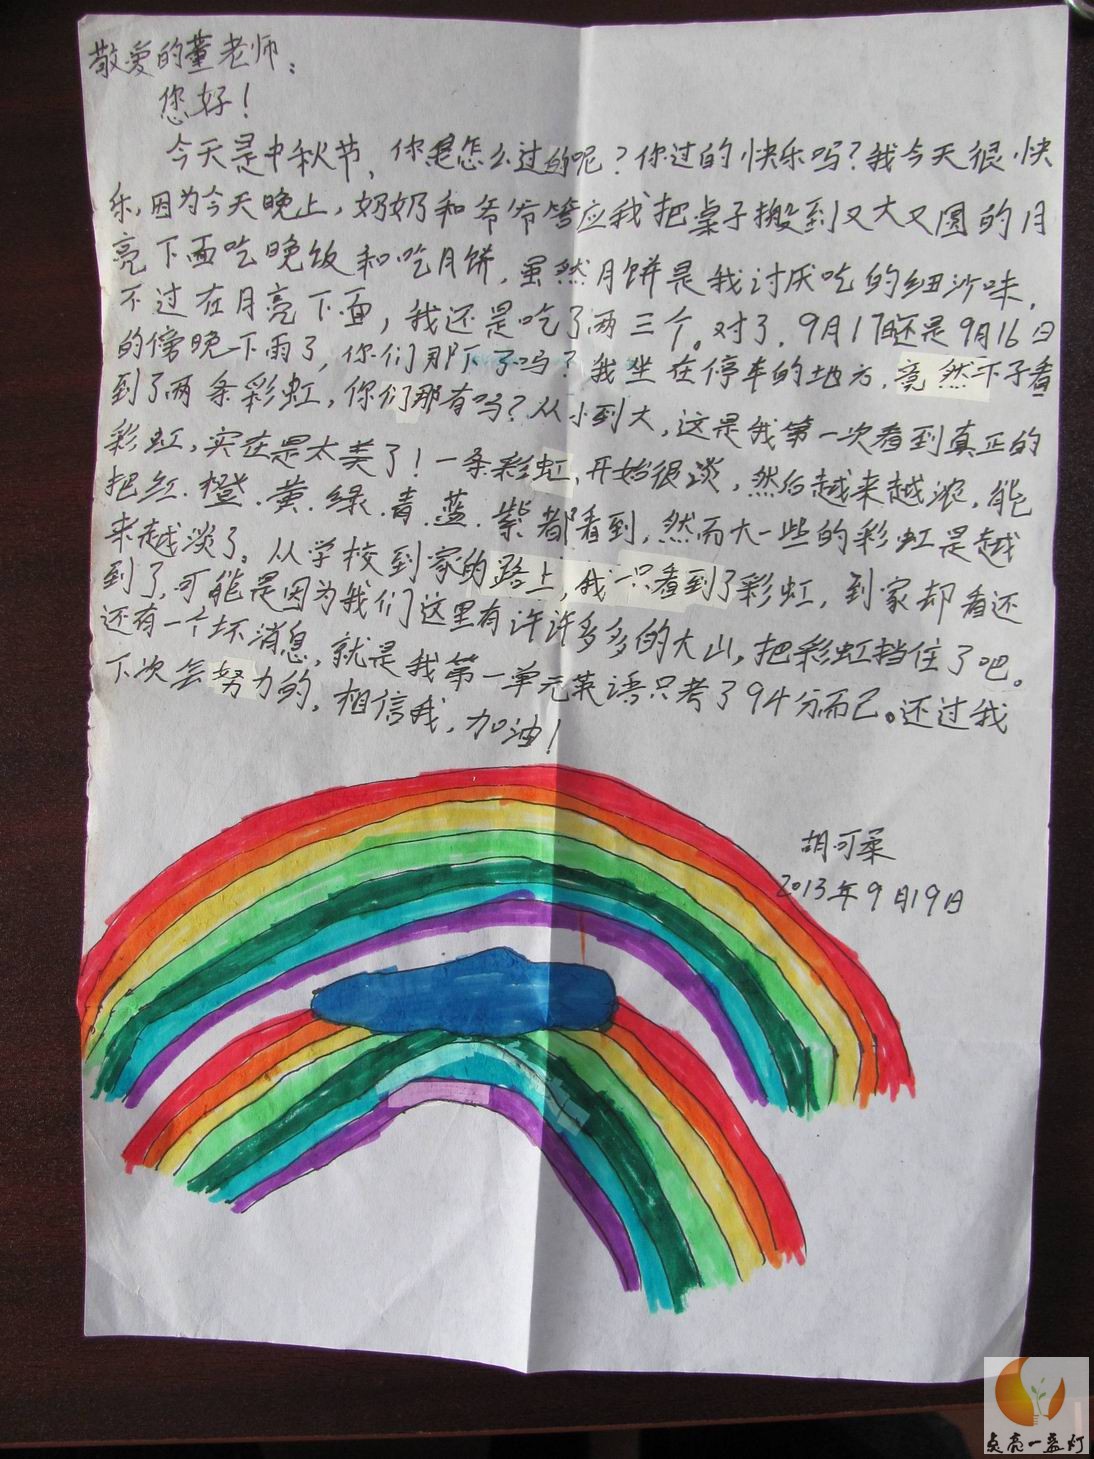 敬爱的董老师:
您好!
今天是中秋节,你是怎么过的呢?你过的快乐吗?我今天很快
乐,因为今天晚上,奶奶和爷爷答应我把桌子搬到又大又圆的月
亮下面吃晚饭和吃月饼,虽然月饼是我讨厌吃的细沙味,
不过在月亮下面,我还是吃了两三个。对了,9月17日还是9月16日
的傍晚下雨了,你们那下了吗?我坐在停车的地方,竟然下子看
到了两条彩虹,你们那有吗?从小到大,这是我第一次看到真正的
彩虹,实在是太美了!一条彩虹,开始很淡,然后越来越浓,能
把红.橙.黄.绿.青.蓝.紫都看到,然而大一些的彩虹是越
来越淡了。从学校到家的路上,我一只看到了彩虹,到家却看还
到了,可能是因为我们这里有许许多多的大山,把彩虹挡住了吧。
还有一个坏消息,就是我第一单元英语只考了94分而已。还过我
下次会努力的,相信我,加油!
胡可柔
2013年9月19日
点亮一盏灯